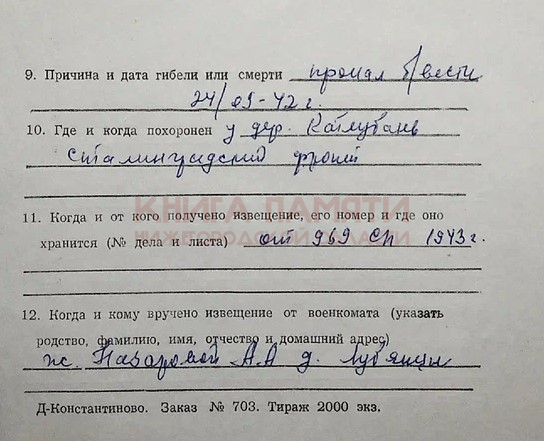 9. Причина и дата гибели или смерти пропал б/вести
24/09-42 г.
10. Где и когда похоронен у дер. Котлубань
Сталинградский фронт
КНИГА ПАМЯТИ
11. Когда и от кого получено извещение, его номер и где оно
НИЖЕГОРОДСКОЙ ОБЛАСТИ
хранится (№ дела и листа) от 969 сп 1943 г.
12. Когда и кому вручено извещение от военкомата (указать
родство, фамилию, имя, отчество и домашний адрес)
ж. Назаровой А А д. Лубянцы
Д-Константиново. Заказ № 703. Тираж 2000 экз.